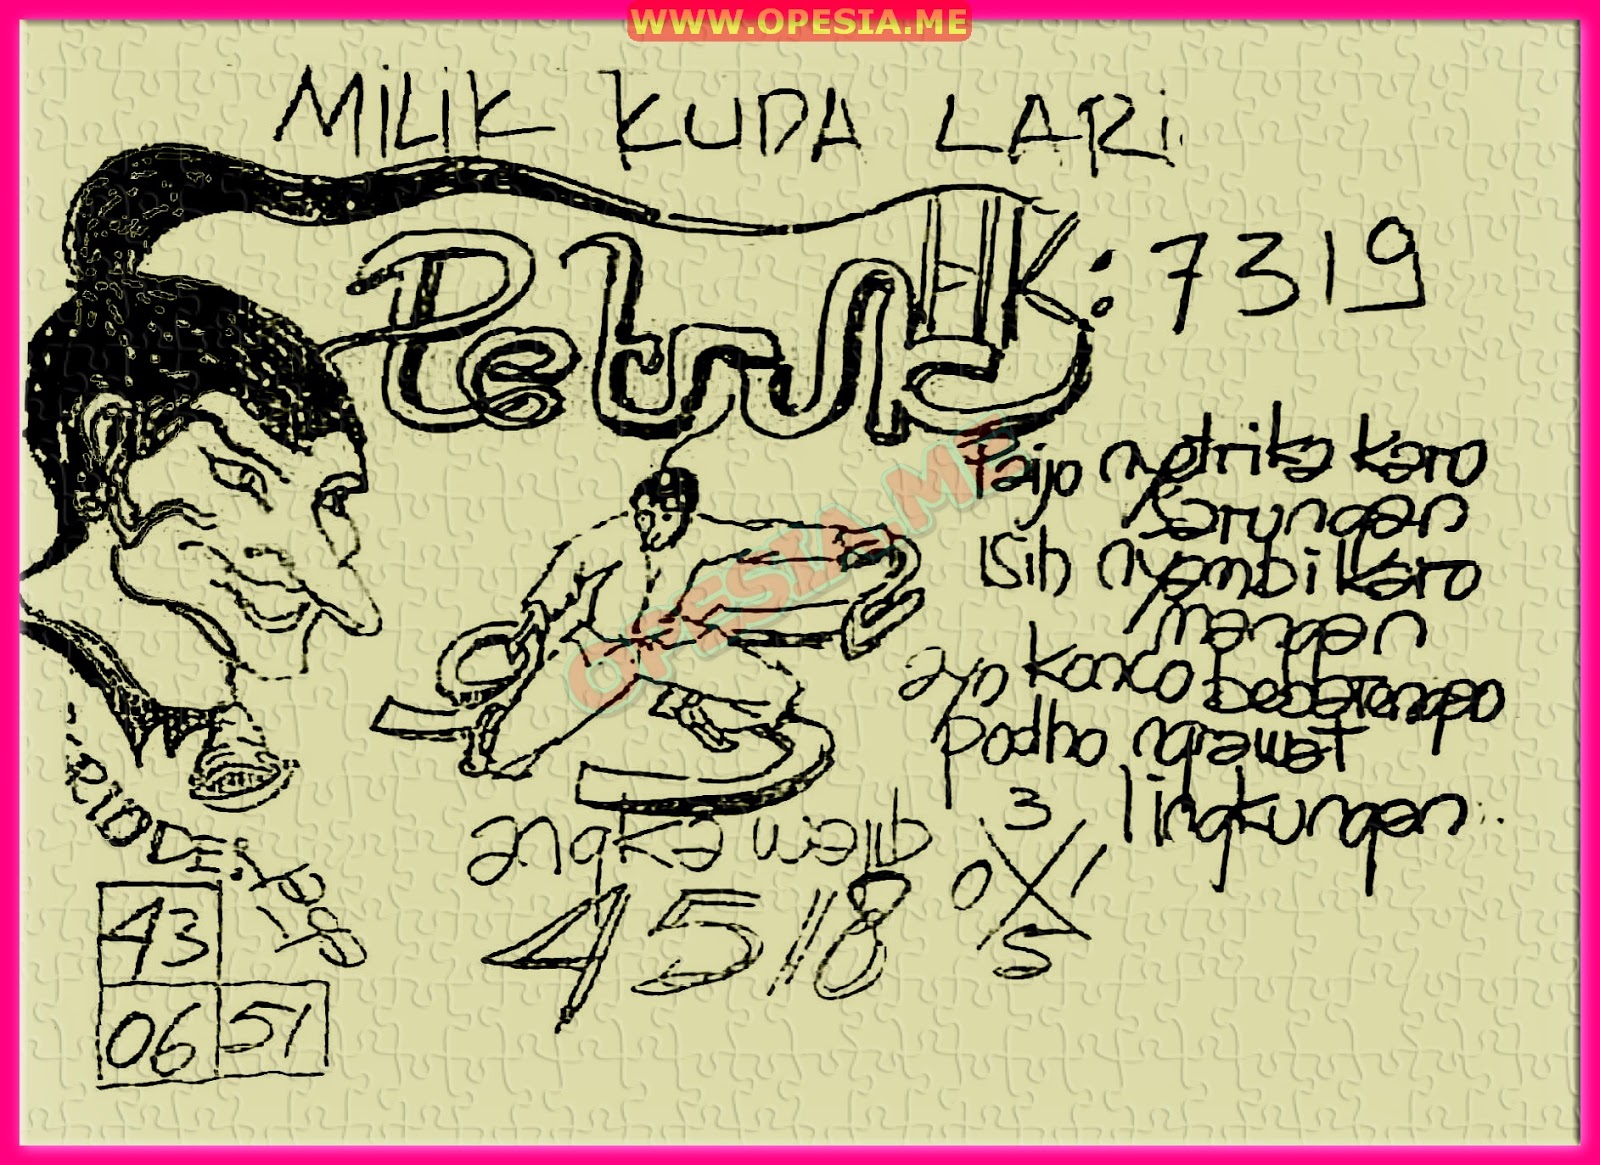 WWW.OPESIA.ME
MILIK KUDA LARI
Petruk
HK: 7319
OPESIA.ME
Paijo nyetrika karo
sarungan
isih nyambi karo
mangan
ayo konco bebarengan
podho ngrawat
lingkungan
angka wajib
4518
3
0 1
5
43
06 51